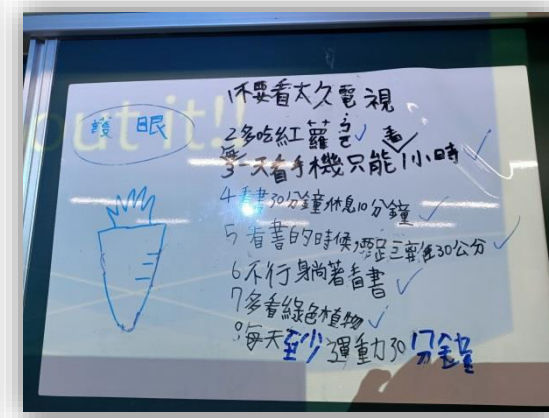 out it!!
護眼
1不要看太久電視
2多吃紅蘿ㄅㄛ˙
3每一天看手機只能看1小時
4看書30分鐘休息10分鐘
5看書的時候,要距離30公分
6不行身尚著看書
7多看綠色植物
8每天至少運動30分鐘